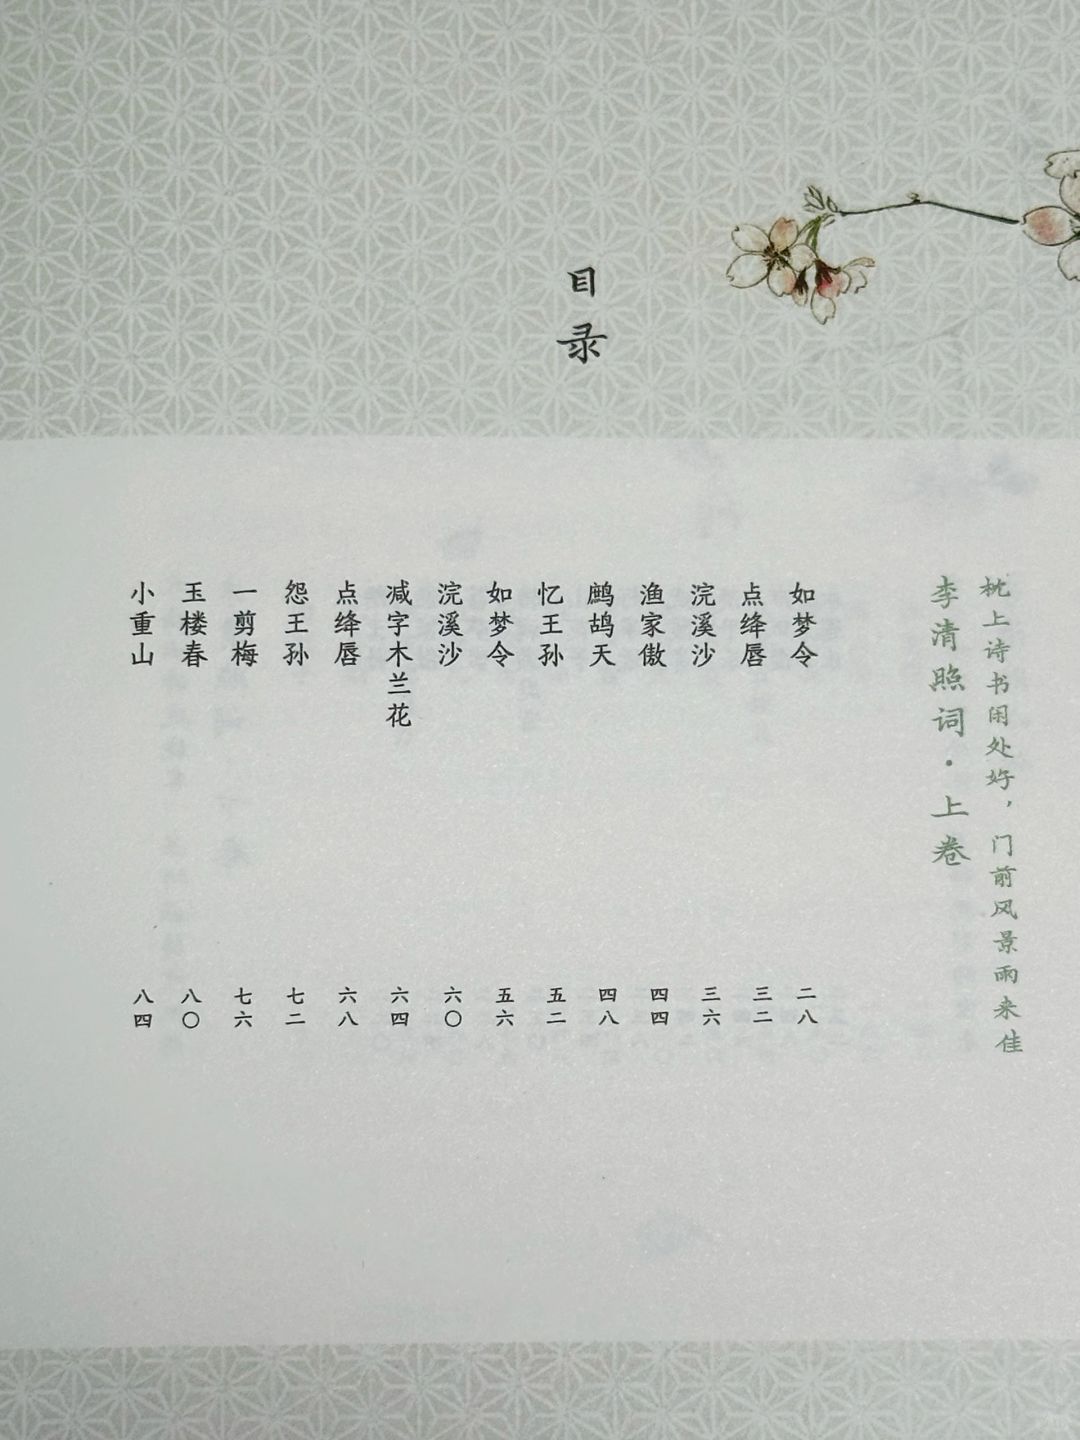 目录
枕上诗书闲处好，门前风景雨来佳
李清照词·上卷
如梦令 二八
点绛唇 三二
浣溪沙 三六
渔家傲 四四
鹧鸪天 四八
忆王孙 五二
如梦令 五六
浣溪沙 六〇
减字木兰花 六四
点绛唇 六八
怨王孙 七二
一剪梅 七六
玉楼春 八〇
小重山 八四